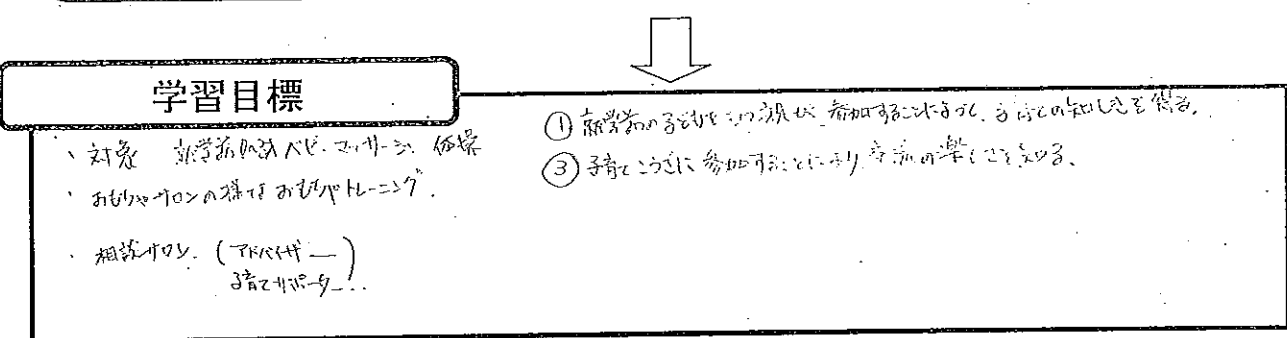 学習目標
・対象 就学前の親 ベビーマッサージ、体操
・おもちゃサロンの様な おもちゃトレーニング.
・相談サロン. (アドバイザー
子育てサポーター)..
① 就学前の子どもをもつ親が、参加することによって、子育ての知しきを得る.
③ 子育てこうざに参加することにより 交流の楽しさを知る、